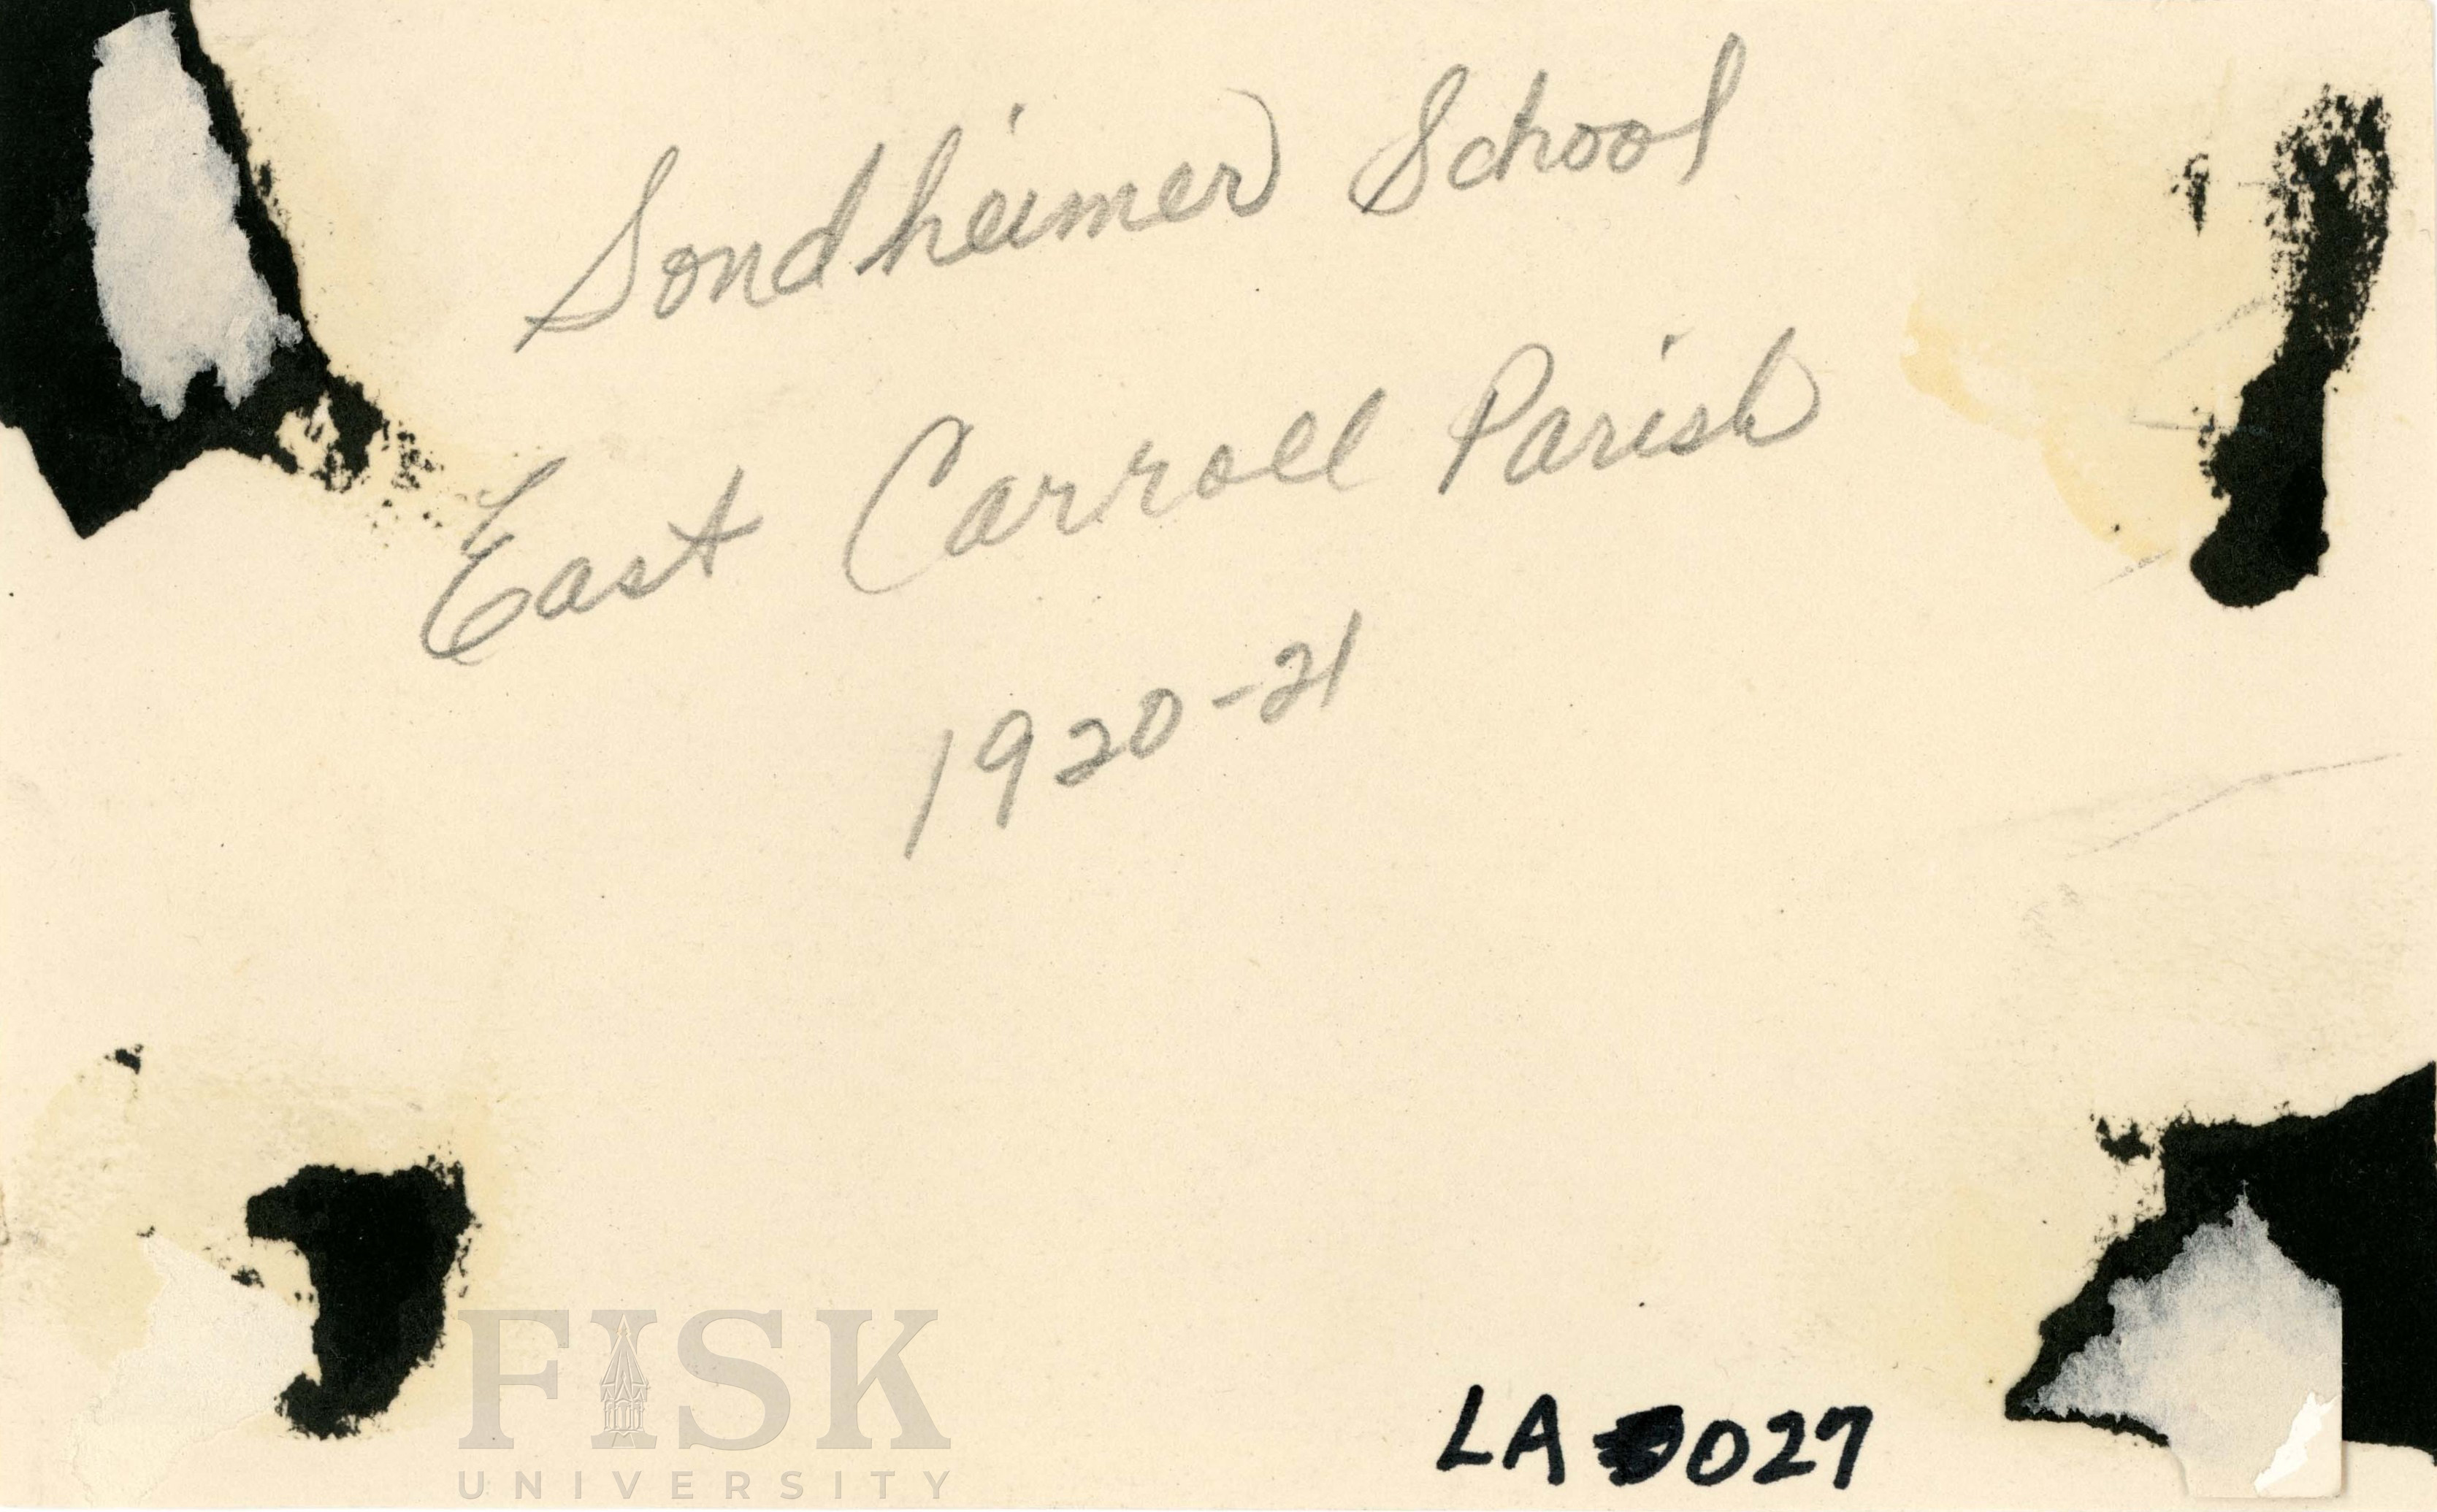 Sondheimer School
East Carroll Parish
1920-21
LA 0027
FISK
UNIVERSITY